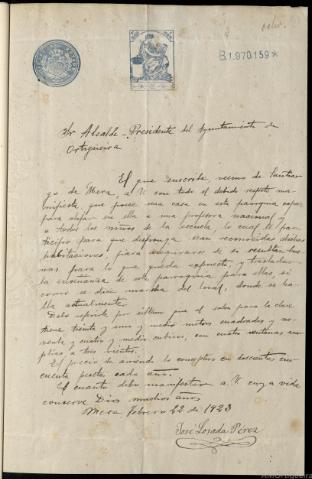 B1.970.159*
Sr Alcalde-Presidente del Ayuntamiento de
Ortigueira
El que suscribe vecino de Santia-
go de Mera, a V con todo el debido respeto ma-
nifiesta, que posee una casa en esta parroquia capaz
para alojar en ella a una profesora nacional y
a todos los niños de la escuela, lo cual le par-
ticipo para que disponga sean reconocidas dichas
habitaciones, para
nas para lo que queda expuesto, y trasladar
la enseñanza de esta parroquia para ellas, si
como se dice marcha del local, donde se ha-
lla actualmente.
Debo advertir por último que el salon para la clase
tiene treinta y uno y medio metros cuadrados y no-
venta y cuatro y medio cubicos, con cuatro ventanas am-
plias a tres vientos.
El precio de arriendo lo conceptuo en doscientas cin-
cuenta pesetas cada año.
Es cuanto debo manifestar a V cuya vida
conserve Dios muchos años
Mera febrero 22 de 1923
José Losada Pérez